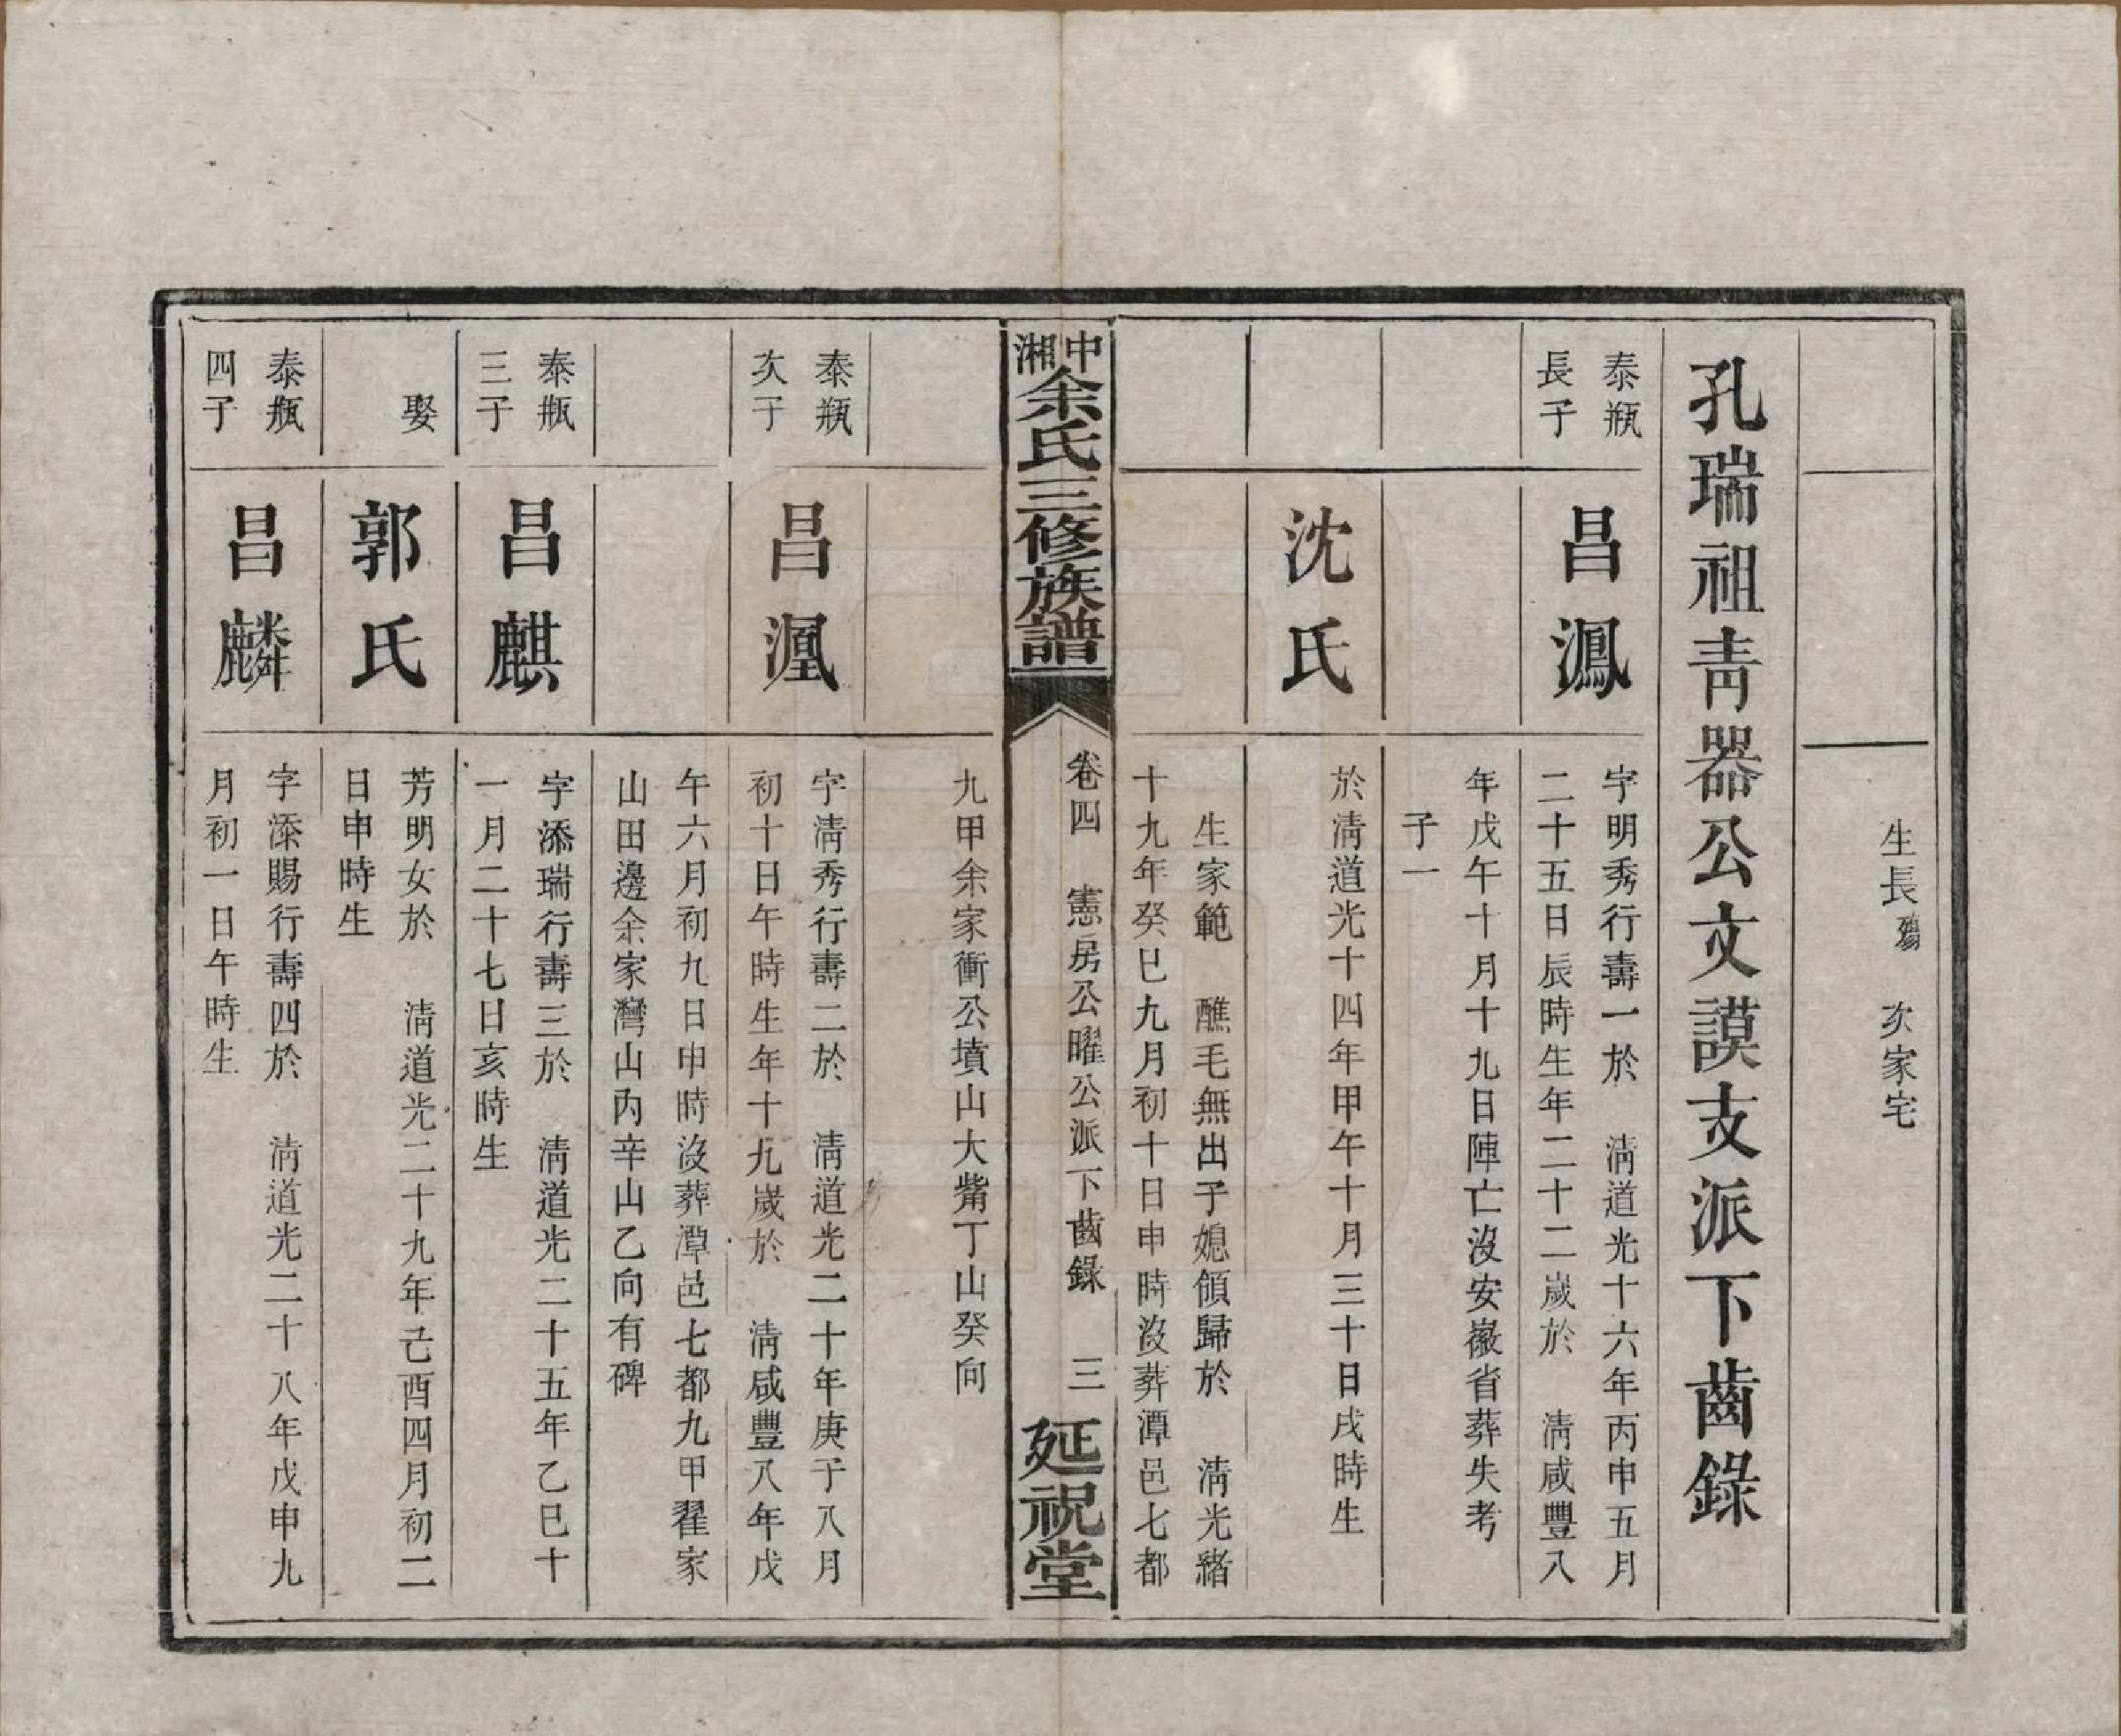 生長殤　次家宅
孔瑞祖青器公文謨支派下齒錄
泰瓶
長子
昌鳯
字明秀行壽一於　清道光十六年丙申五月
二十五日辰時生年二十二歲於　清咸豐八
年戊午十月十九日陣亡沒安徽省葬失考
子一
沈氏
於清道光十四年甲午十月三十日戌時生
生家範　醮毛無出子媳領歸於　清光緒
十九年癸巳九月初十日申時沒葬潭邑七都
中湘余氏三修族譜
卷四　憲房公曜公派下齒錄　三
延祝堂
九甲余家衝公墳山大觜丁山癸向
泰瓶
次子
昌
字清秀行壽二於　清道光二十年庚子八月
初十日午時生年十九歲於　清咸豐八年戊
午六月初九日申時沒葬潭邑七都九甲翟家
山田邊余家灣山內辛山乙向有碑
泰瓶
三子
昌麒
字添瑞行壽三於　清道光二十五年乙巳十
一月二十七日亥時生
娶
郭氏
芳明女於　清道光二十九年己酉四月初二
日申時生
泰瓶
四子
昌麟
字添賜行壽四於　清道光二十八年戊申九
月初一日午時生